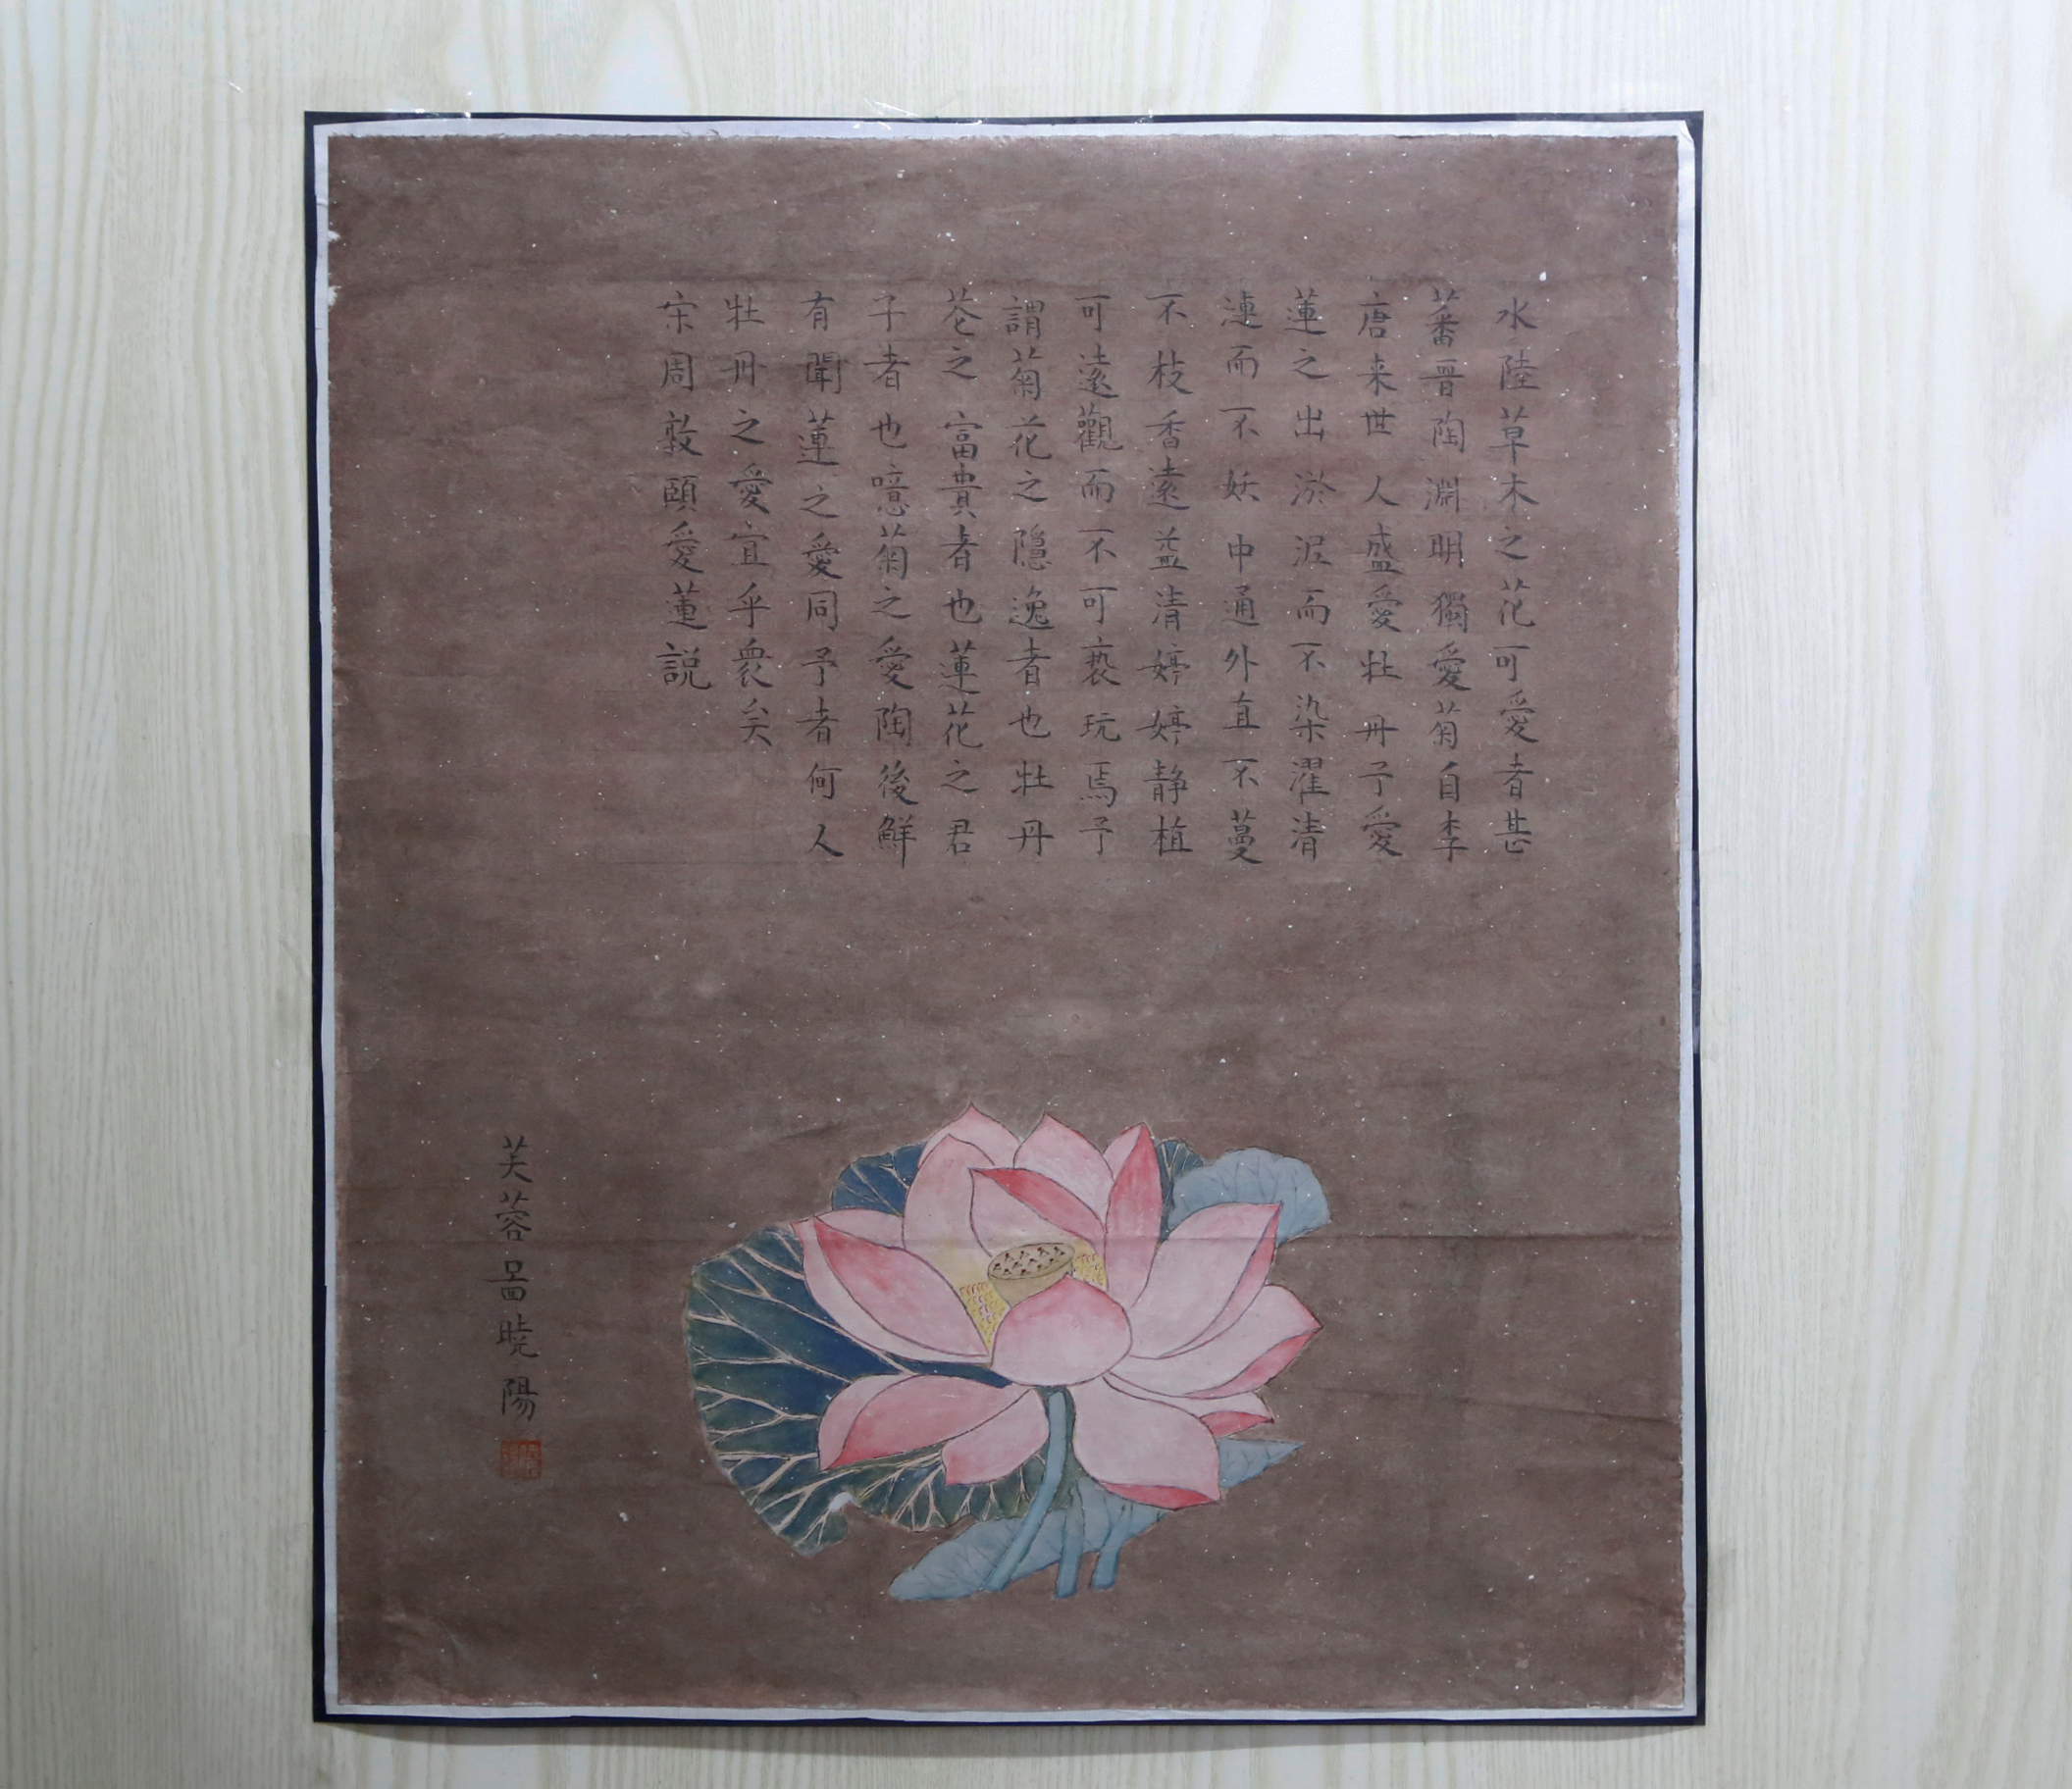 水陸草木之花可愛者甚
蕃晋陶淵明獨愛菊自李
唐来世人盛愛牡丹予愛
蓮之出淤泥而不染濯清
漣而不妖中通外直不蔓
不枝香遠益清婷婷静植
可遠觀而不可褻玩焉予
謂菊花之隐逸者也牡丹
花之富貴者也蓮花之君
子者也噫菊之愛陶後鮮
有聞蓮之愛同予者何人
牡丹之愛宜乎衆矣
宋周敦頤愛蓮説
芙蓉啚曉陽